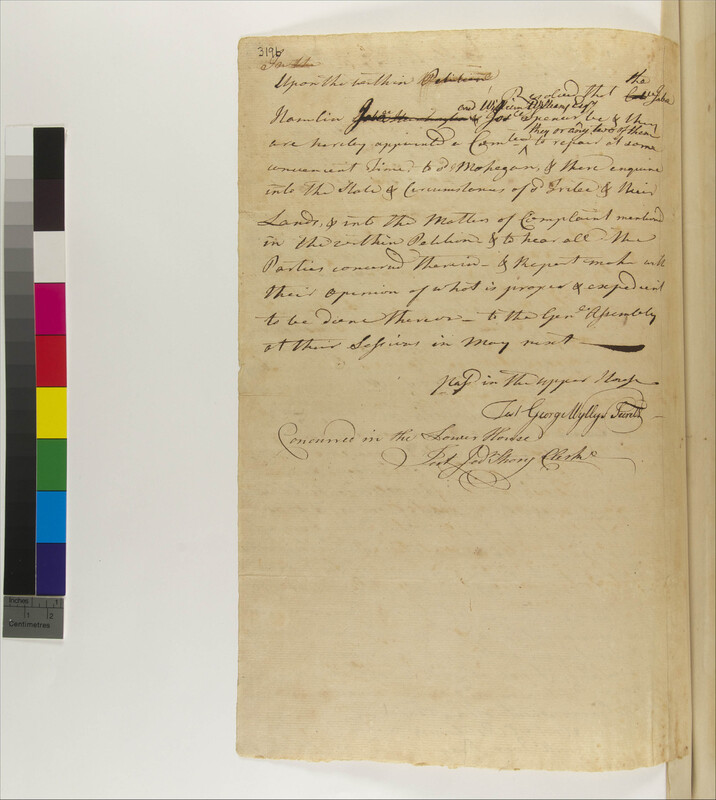 319b
Upon the within Petition
Resolved that the
Hamlin and William Esqr Jabez
Spencer be & they
are hereby appointed a Comtee they or any two of them to repair at some
convenient Time, to sd Mohegan, & there enquire
into the State & Circumstances of sd Tribe & their
Lands, & into the Matters of Complaint mentiond
in the within Petition & to hear all the
Parties concerned therein – & Report make with
their Opinion of what is proper & expedient
to be done thereon – to the Genll Assembly
at their Sessions in May next
Past in the upper House
Test George Wyllys Secretr
Concurred in the Lower House
Test Clerk
Inches 1
1 2
Centimetres